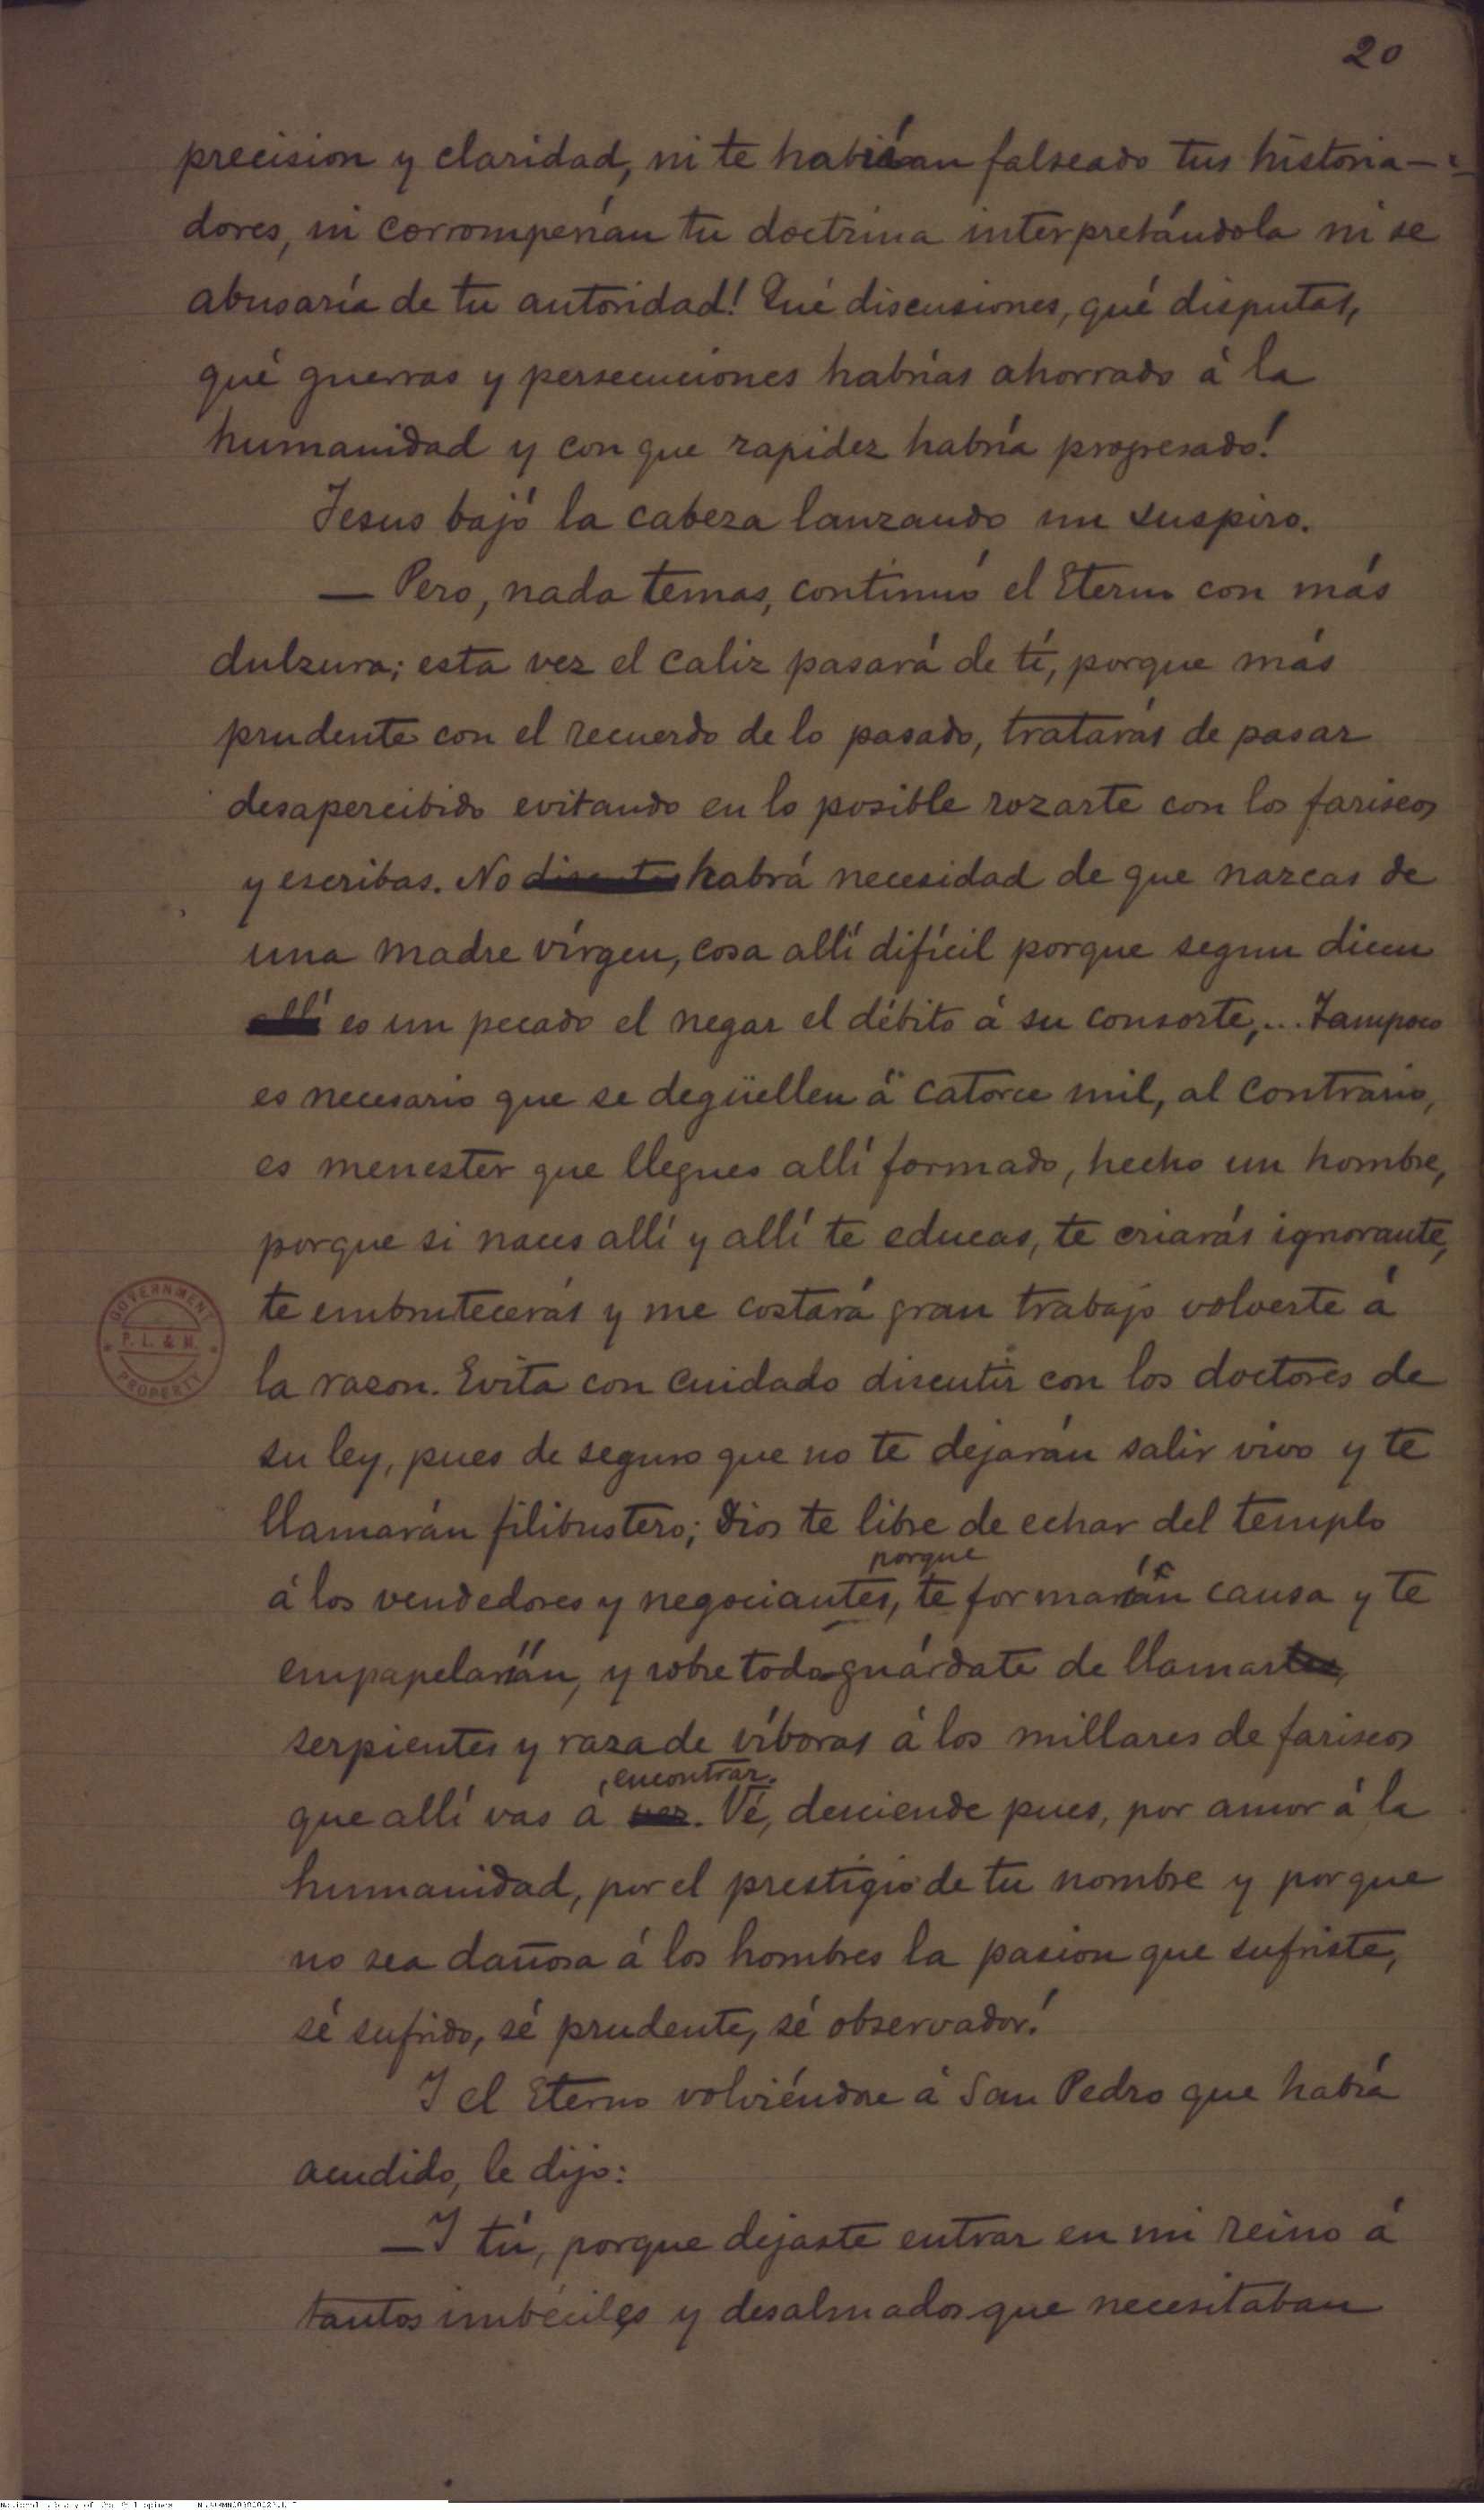 20
precision y claridad, ni te habrían falseado tus historia-
dores, ni corromperían tu doctrina interpretándola ni se
abusaría de tu autoridad! Qué discusiones, qué disputas,
qué guerras y persecuciones habrías ahorrado á la
humanidad y con que rapidez habría progresado!
Jesus bajó la cabeza lanzando un suspiro.
— Pero, nada temas, continuó el Eterno con más
dulzura; esta vez el caliz pasará de tí, porque más
prudente con el recuerdo de lo pasado, tratarás de pasar
desapercibido evitando en lo posible rozarte con los fariseos
y escribas. No discutas habrá necesidad de que nazcas de
una madre vírgen, cosa allí difícil porque segun dicen
allí es un pecado el negar el débito á su consorte,... Tampoco
es necesario que se degüellen á catorce mil, al contrario,
es menester que llegues allí formado, hecho un hombre,
porque si naces allí y allí te educas, te criarás ignorante,
te embrutecerás y me costará gran trabajo volverte á
la razon. Evita con cuidado discutir con los doctores de
su ley, pues de seguro que no te dejarán salir vivo y te
llamarán filibustero; Dios te libre de echar del templo
porque
á los vendedores y negociantes, te formarían causa y te
empapelarían, y sobre todo guárdate de llamar
serpientes y raza de víboras á los millares de fariseos
encontrar.
que allí vas á ver. Vé, desciende pues, por amor á la
humanidad, por el prestigio de tu nombre y porque
no sea dañosa á los hombres la pasion que sufriste,
sé sufrido, sé prudente, sé observador!
I el Eterno volviéndose á San Pedro que había
acudido, le dijo:
— I tú, porque dejaste entrar en mi reino á
tantos imbéciles y desalmados que necesitaban
GOVERNMENT
P. L. & M.
PROPERTY
National Library of the Philippines